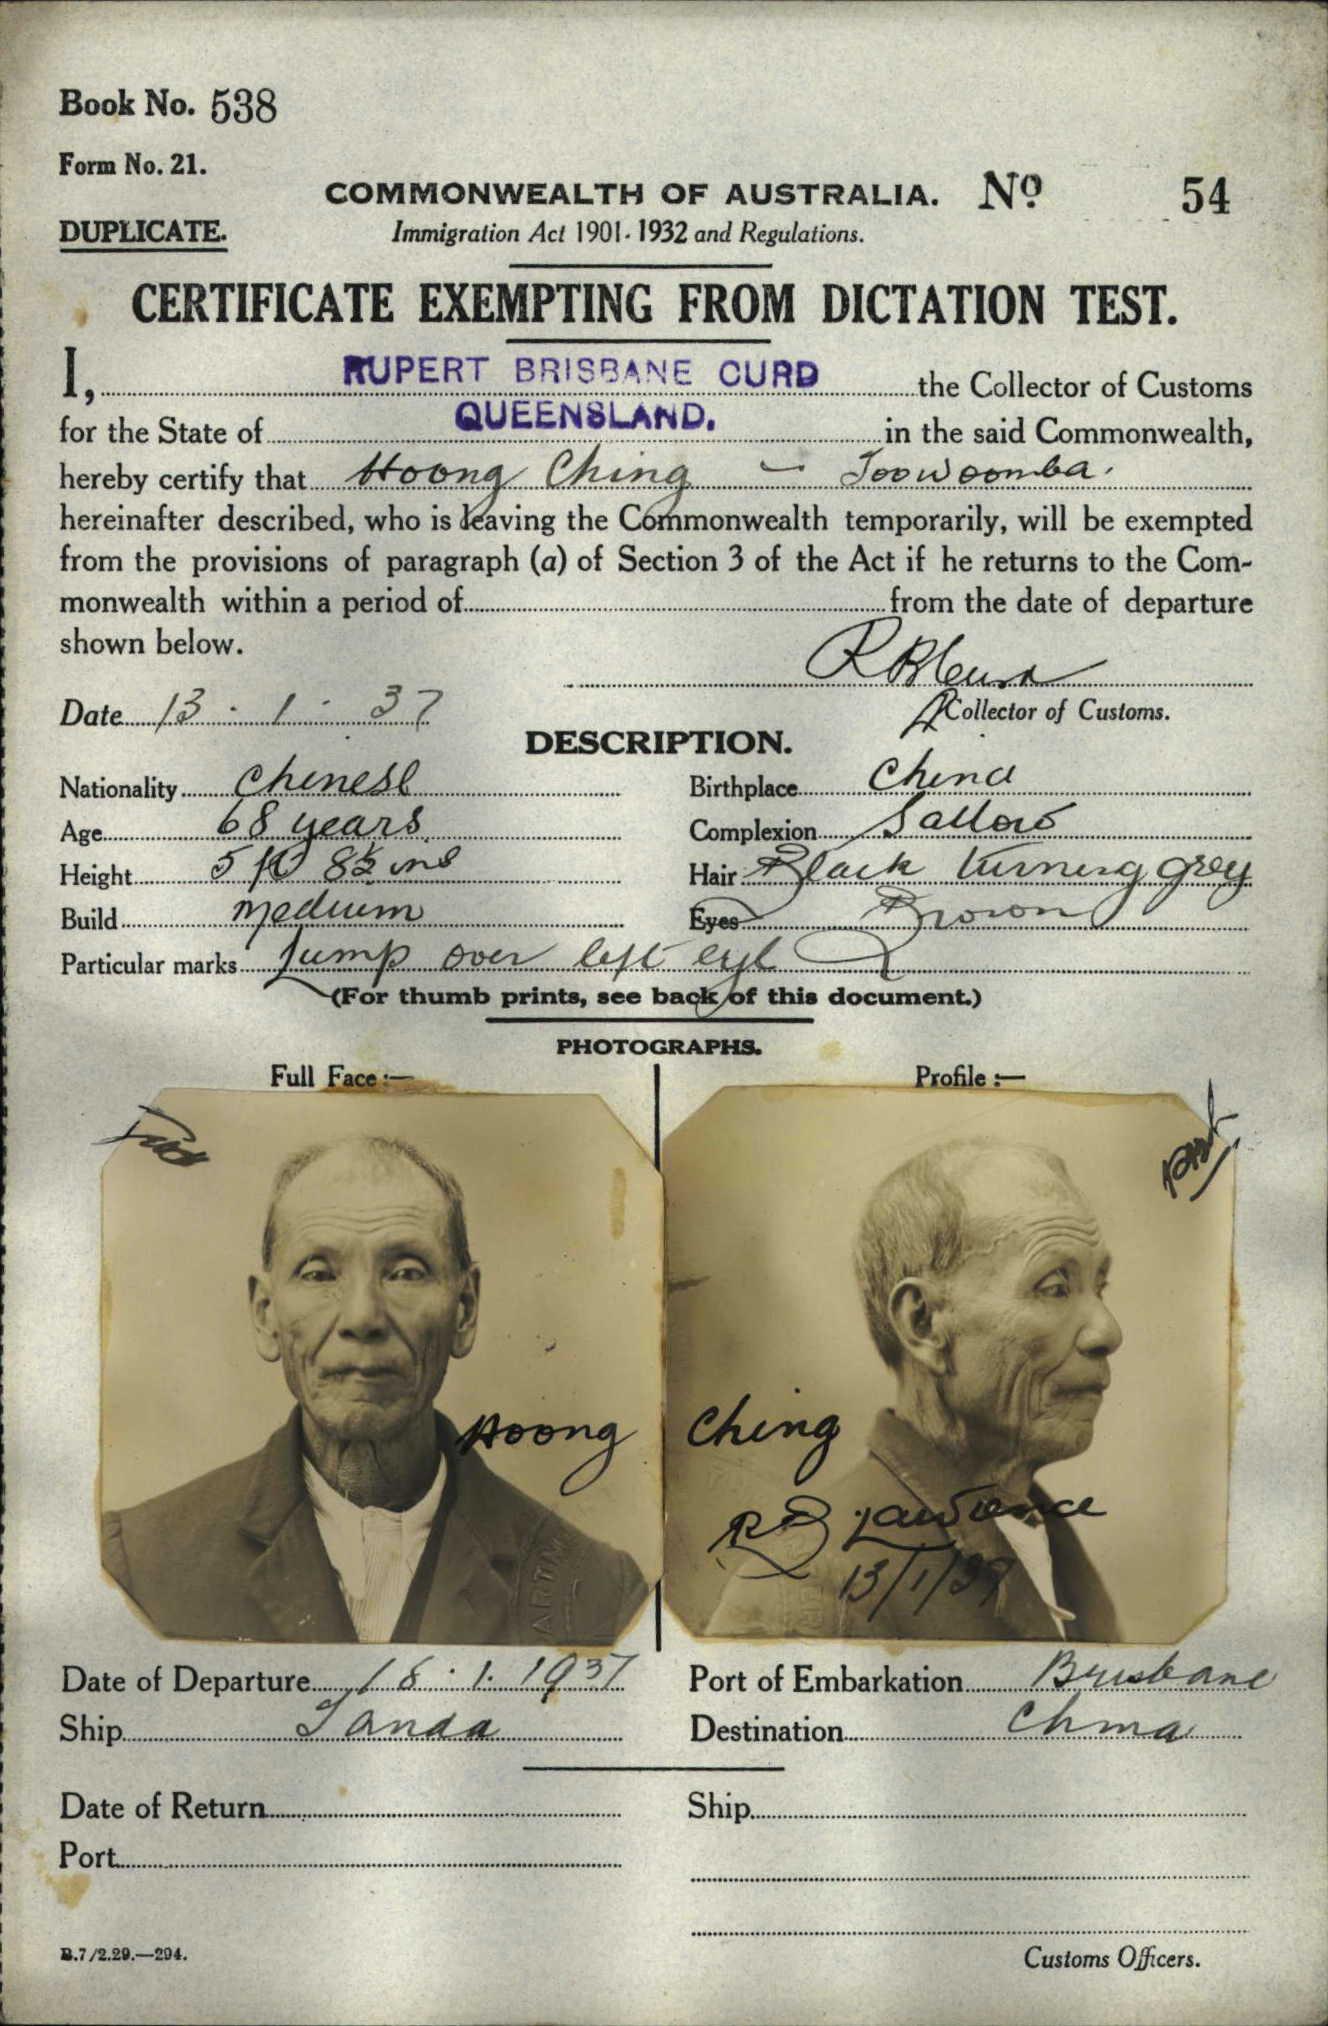 Book No. 538
Form No. 21.
COMMONWEALTH OF AUSTRALIA. No 54
DUPLICATE.
Immigration Act 1901-1932 and Regulations.
CERTIFICATE EXEMPTING FROM DICTATION TEST.
I, RUPERT BRISBANE CURD the Collector of Customs
for the State of QUEENSLAND. in the said Commonwealth,
hereby certify that Hoong Ching - Toowoomba.
hereinafter described, who is leaving the Commonwealth temporarily, will be exempted
from the provisions of paragraph (a) of Section 3 of the Act if he returns to the Com-
monwealth within a period of from the date of departure
shown below.
R B Curd
Date 13.1.37 Collector of Customs.
DESCRIPTION.
Nationality Chinese Birthplace China
Age 68 years Complexion Sallow
Height 5 ft 8½ ins Hair Black turning grey
Build Medium Eyes Brown
Particular marks Lump over left eye
(For thumb prints, see back of this document.)
PHOTOGRAPHS.
Full Face:— Profile:—
Hoong Ching
Lawrence
13/1/37
Date of Departure 18.1.1937 Port of Embarkation Brisbane
Ship Tanda Destination China
Date of Return Ship
Port
B.7/2.29.—294. Customs Officers.